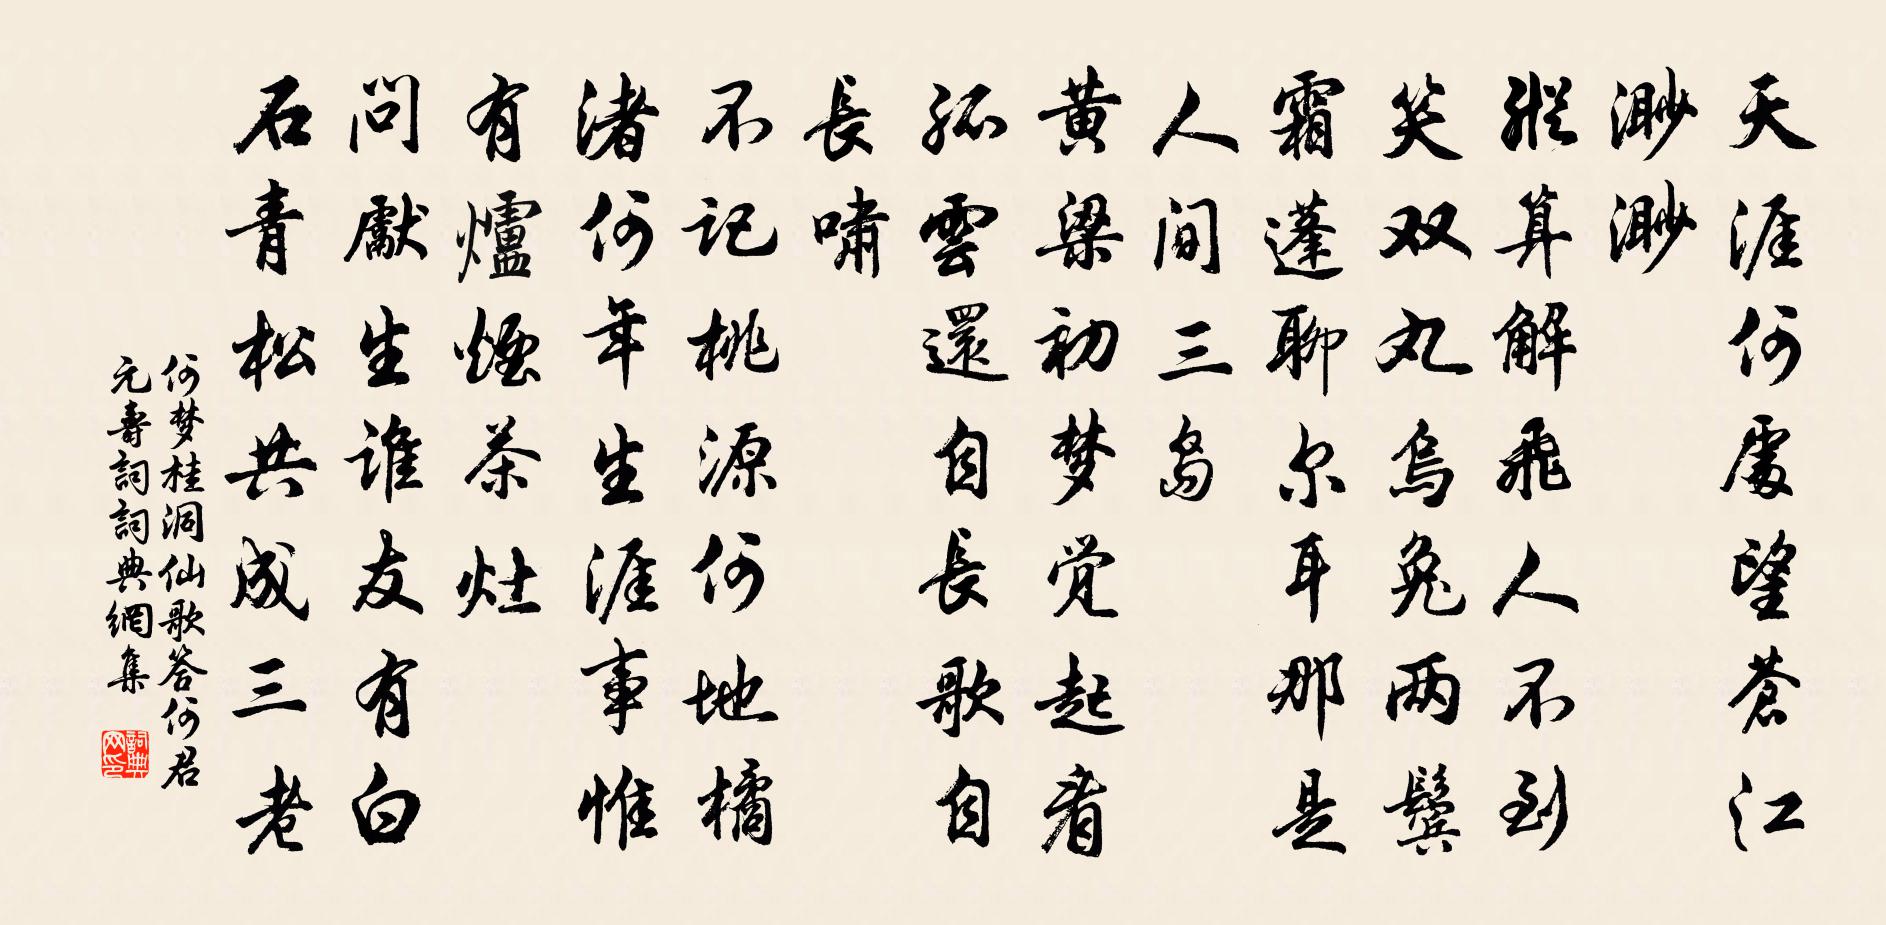 天涯何處望蒼江
渺渺
縱算解飛人不到
笑双丸烏兔两鬓
霜蓬聊尔耳那是
人间三岛
黄粱初梦觉起看
孤雲還自長歌自
長嘯
不记桃源何地橘
渚何年生涯事惟
有爐煙茶灶
問獻生谁友有白
石青松共成三老
何梦桂洞仙歌答何君
元壽詞詞典網集
詞典网印